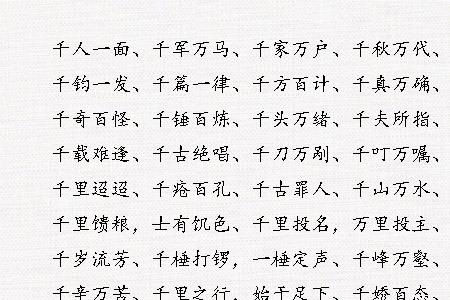 千人一面、千军万马、千家万户、千秋万代、
千钧一发、千篇一律、千方百计、千真万确、
千奇百怪、千锤百炼、千头万绪、千夫所指、
千载难逢、千古绝唱、千刀万剐、千叮万嘱、
千里迢迢、千疮百孔、千古罪人、千山万水、
千里馈粮，士有饥色、千里投名，万里投主、
千岁流芳、千棰打锣，一棰定声、千峰万壑、
千辛万苦、千里之行，始于足下、千娇百态、